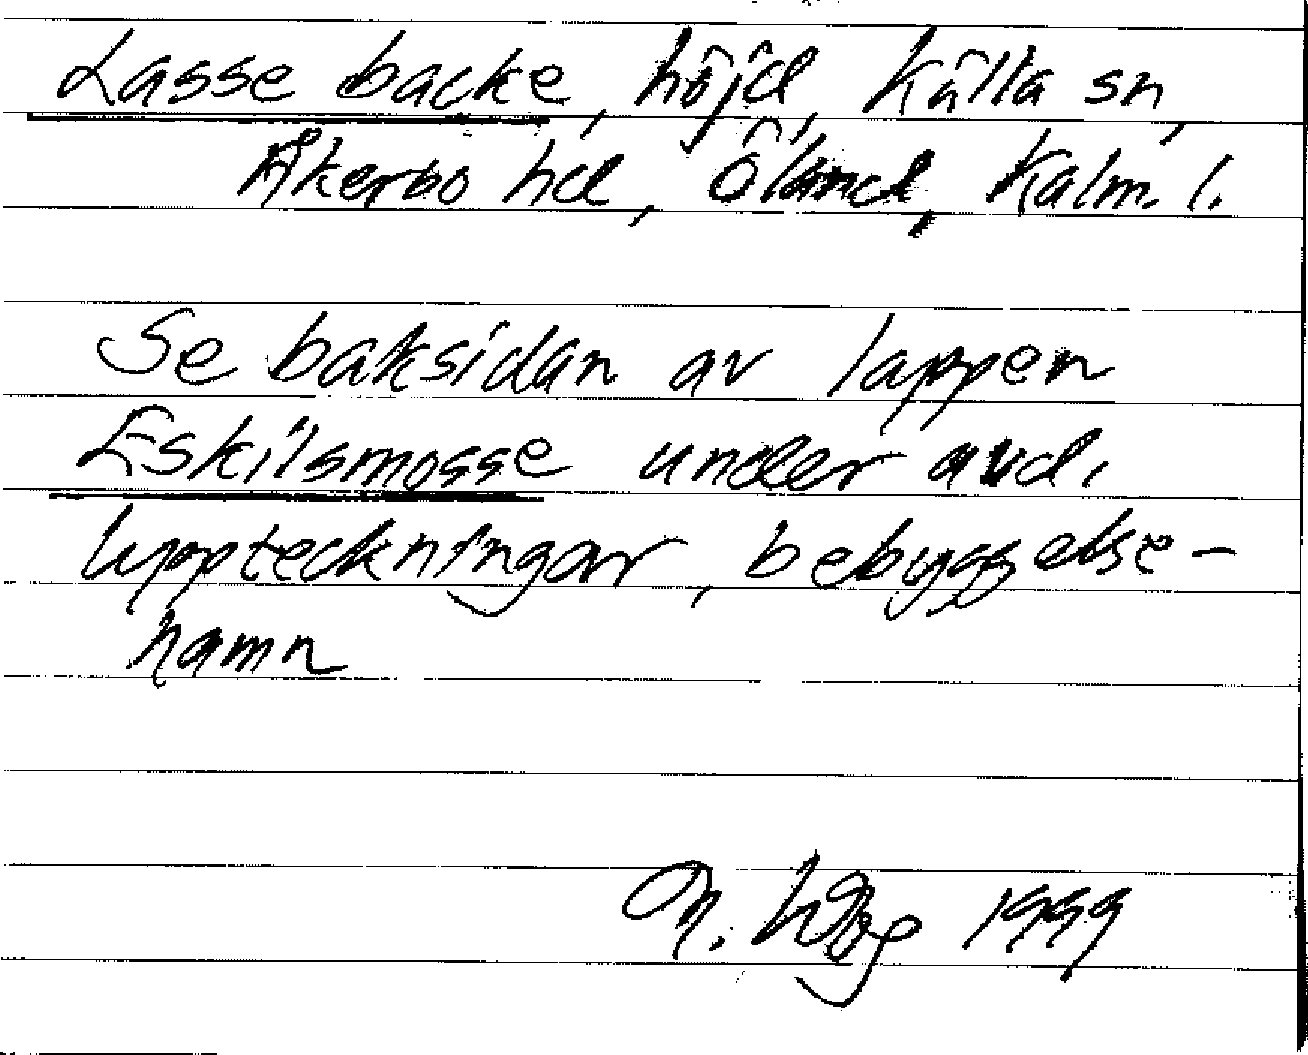 Lasse backe, höjd, Källa sn,
Åkerbo hd, Öland, Kalm. l.
Se baksidan av lappen
Eskilsmosse under avd.
uppteckningar, bebyggelse-
namn
1999